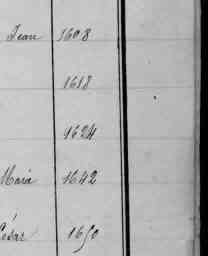 Jean 1608
1618
1624
Maria 1642
César 1650